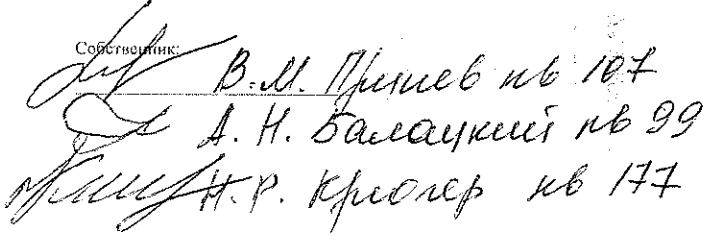 Собственник:
В.М. нв 107
А.Н. Балацкий нв 99
Н.Р. Крюгер нв 177